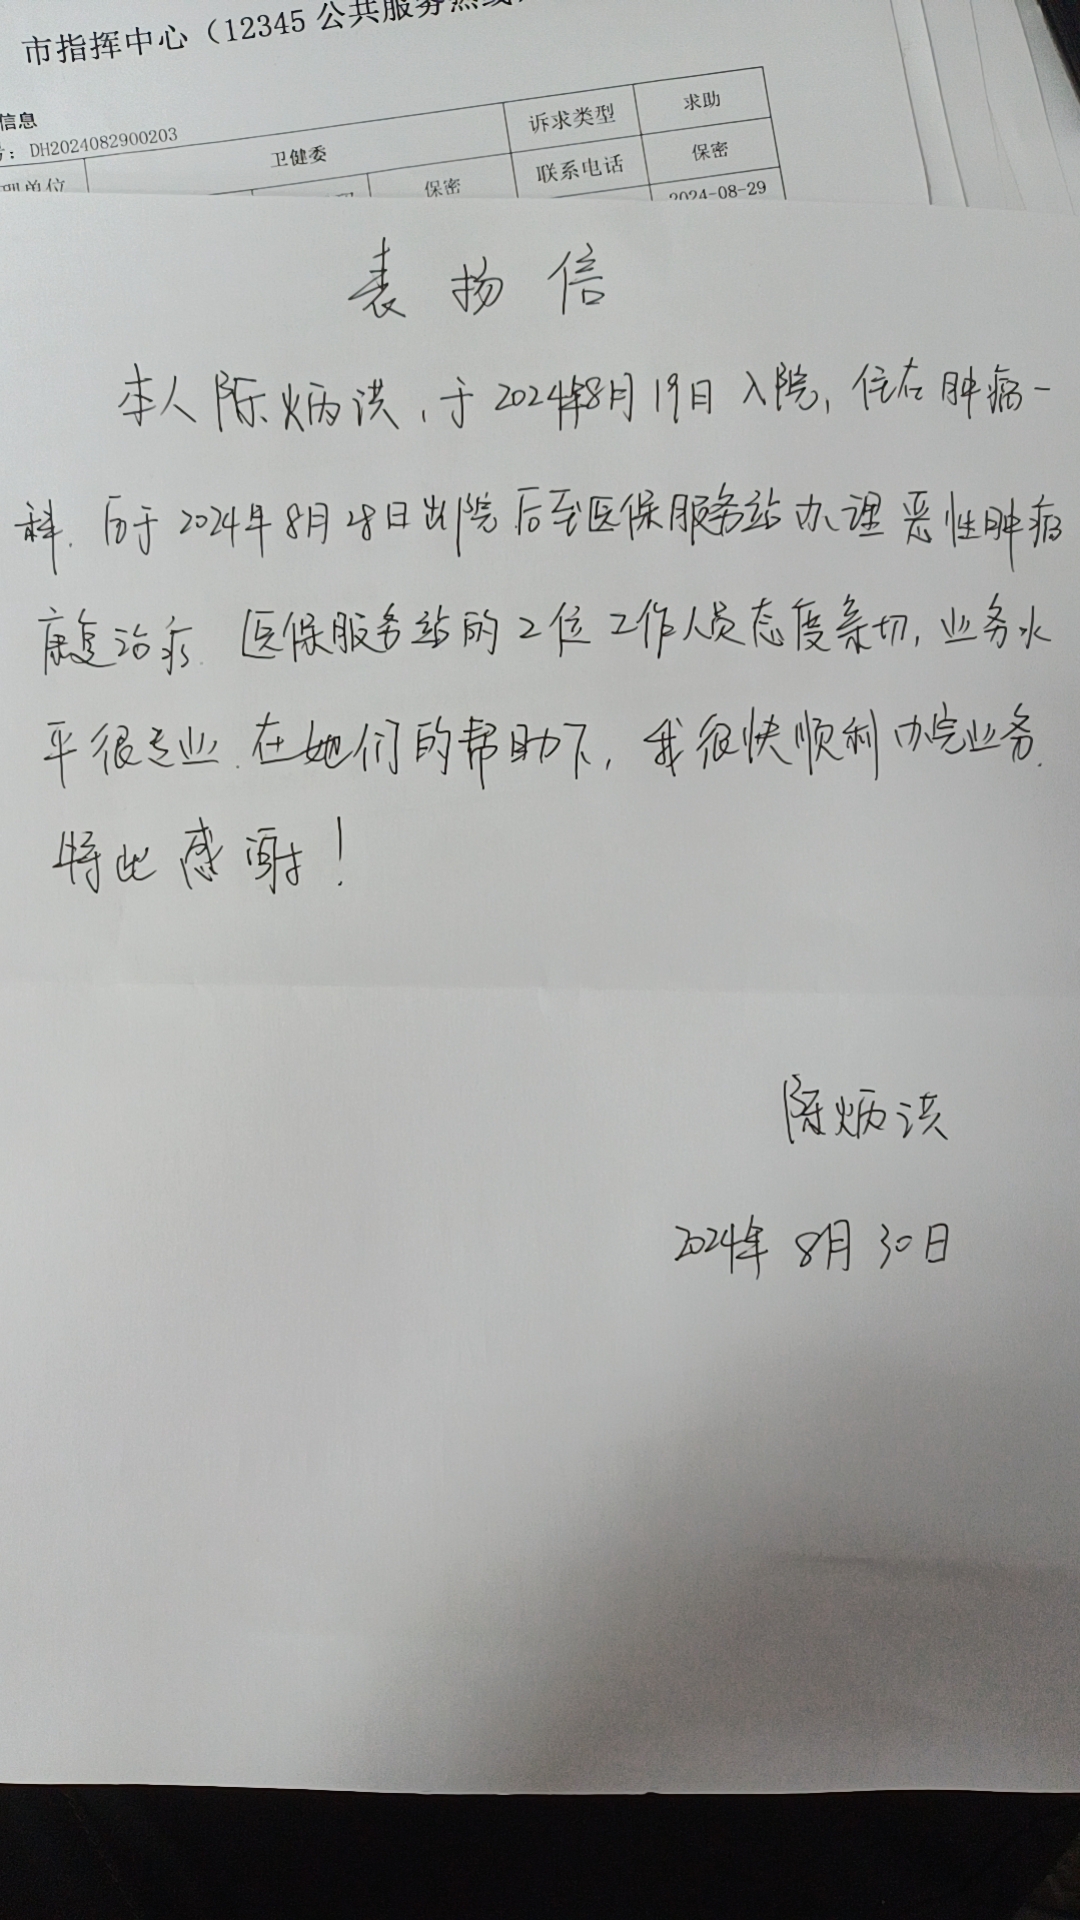 市指挥中心（12345 公共服务热线
信息
号：DH2024082900203
卫健委
诉求类型
求助
理单位
保密
联系电话
保密
2024-08-29
表扬信
本人陈炳洪，于2024年8月19日入院，住在肿瘤一
科.后于2024年8月28日出院后至医保服务站办理恶性肿瘤
康复治疗.医保服务站的2位工作人员态度亲切，业务水
平很专业.在她们的帮助下，我很快顺利办完业务.
特此感谢！
陈炳洪
2024年8月30日